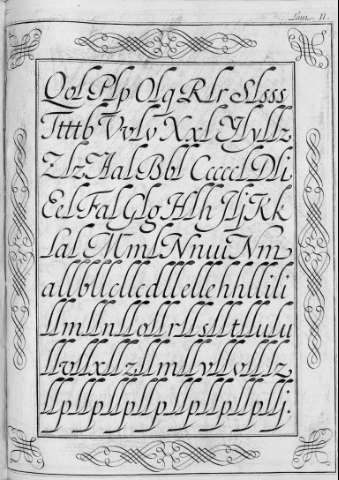 Lam. II.
Qql Plp Olq Rlr Slsss
Ttttb Vvlv Xxl Ylyllz
Zlz Aal Bbl CcccclDli
Eel Fal Glg Hlh Jlj Kk
Lal MmlNnuu Nm
allbllcllcdllellehhllili
llmllnllollrllsllttllulu
llvllxllzllmllvllvlllz
llpllpllpllpllpllpllpllj.